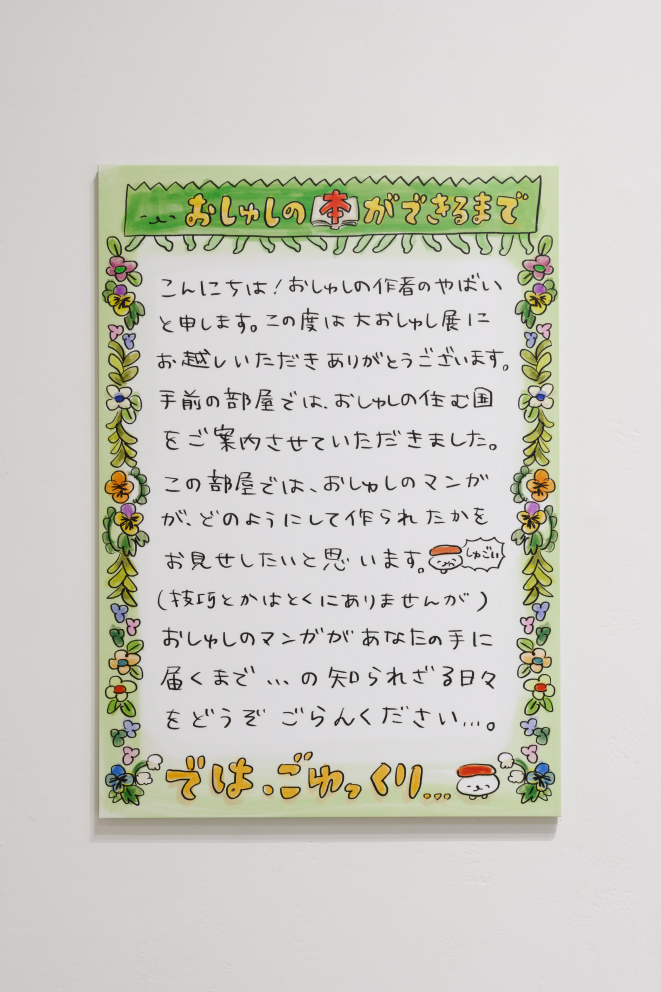 おしゅしの本ができるまで
こんにちは！おしゅしの作者のやばい
と申します。この度は大おしゅし展に
お越しいただきありがとうございます。
手前の部屋では、おしゅしの住む国
をご案内させていただきました。
この部屋では、おしゅしのマンガ
が、どのようにして作られたかを
お見せしたいと思います。
しゅごい
(技巧とかはとくにありませんが)
おしゅしのマンガがあなたの手に
届くまで…の知られざる日々
をどうぞごらんください…。
では、ごゆっくり…